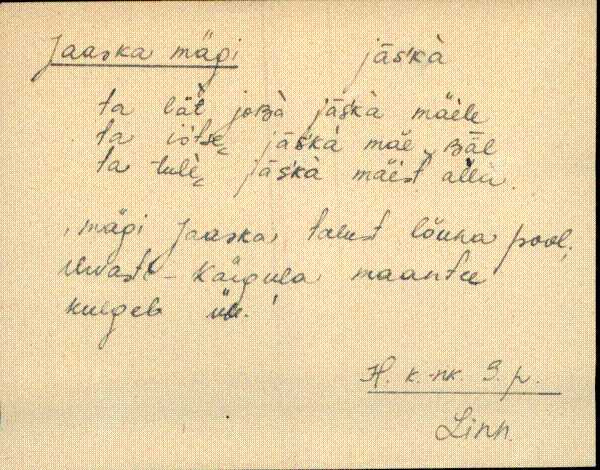 Jaaska mägi jās'kà
ta lät̀ joʙà jās'kà mäele
ta jās'kà mäe ʙäl
ta tulè jās'kà mäest alla.
, mägi Jaaska talust lõuna pool,
Urvaste - Kärgula maantee
kulgeb üle. '
H. k.-nk. S. p.
Linn.